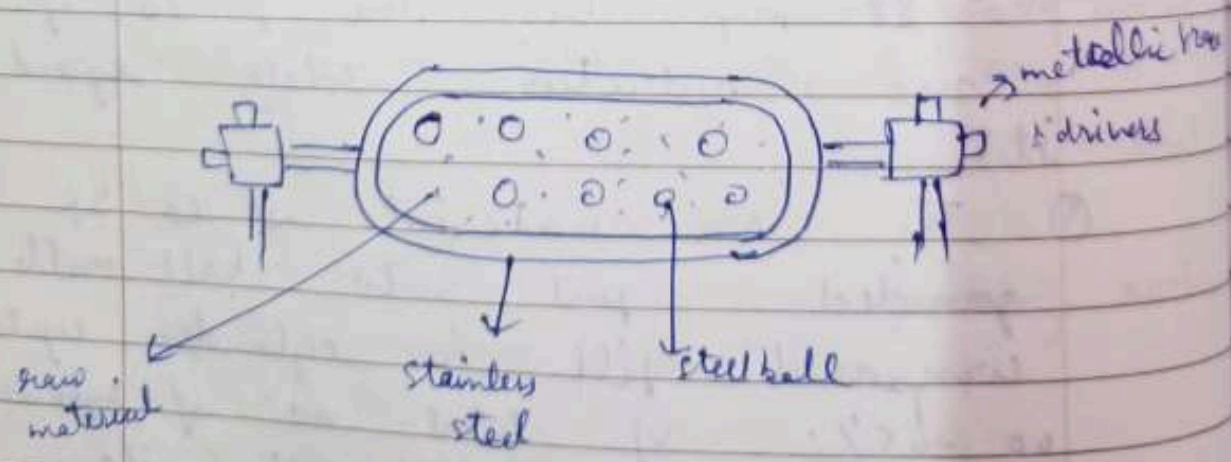 metallic
drivers
raw
material
stainless
steel
steel ball